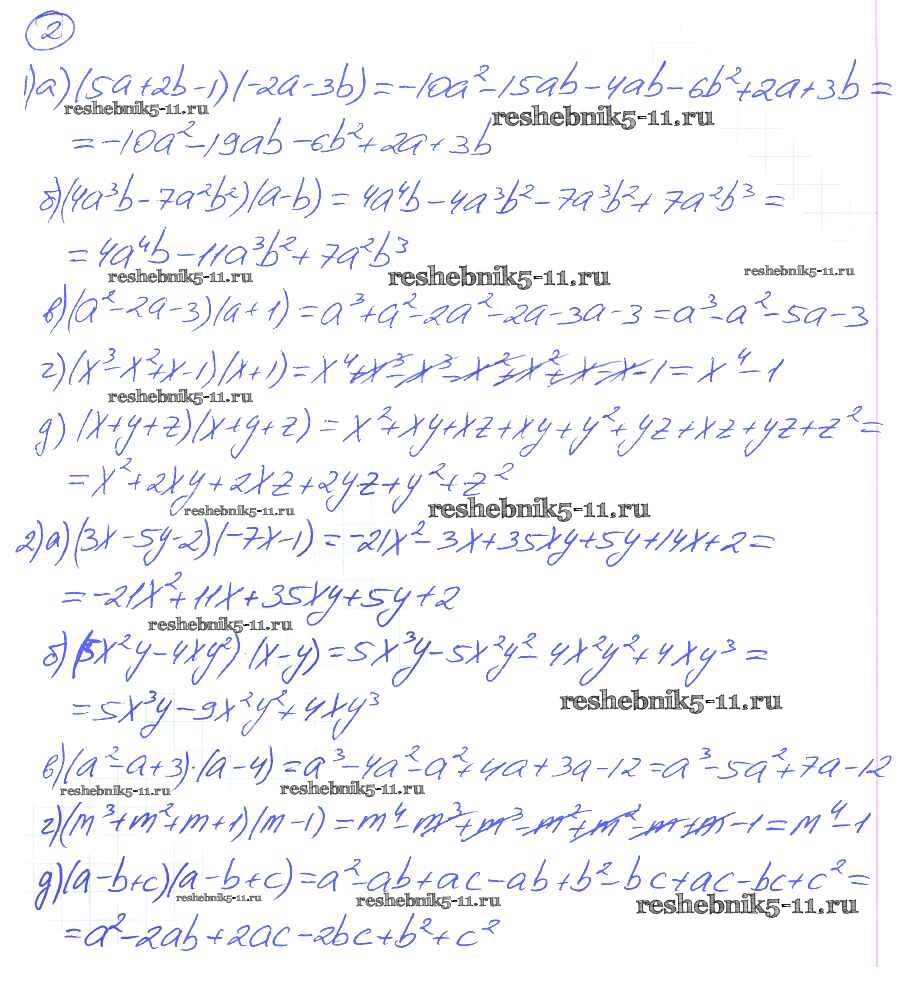 2
1)а) (5a+2b-1)(-2a-3b)=-10a²-15ab-4ab-6b²+2a+3b=
reshebnik5-11.ru
reshebnik5-11.ru
=-10a²-19ab-6b²+2a+3b
б)(4a³b-7a²b²)(a-b)=4a⁴b-4a³b²-7a³b²+7a²b³=
=4a⁴b-11a³b²+7a²b³
reshebnik5-11.ru
reshebnik5-11.ru
reshebnik5-11.ru
в)(a²-2a-3)(a+1)=a³+a²-2a²-2a-3a-3=a³-a²-5a-3
г)(x³-x²+x-1)(x+1)=x⁴+x³-x³-x²+x²+x-x-1=x⁴-1
reshebnik5-11.ru
д)(x+y+z)(x+y+z)=x²+xy+xz+xy+y²+yz+xz+yz+z²=
=x²+2xy+2xz+2yz+y²+z²
reshebnik5-11.ru
reshebnik5-11.ru
2)а)(3x-5y-2)(-7x-1)=-21x²-3x+35xy+5y+14x+2=
=-21x²+11x+35xy+5y+2
reshebnik5-11.ru
б)(5x²y-4xy²)·(x-y)=5x³y-5x²y²-4x²y²+4xy³=
=5x³y-9x²y²+4xy³
reshebnik5-11.ru
в)(a²-a+3)·(a-4)=a³-4a²-a²+4a+3a-12=a³-5a²+7a-12
reshebnik5-11.ru
reshebnik5-11.ru
г)(m³+m²+m+1)(m-1)=m⁴-m³+m³-m²+m²-m+m-1=m⁴-1
д)(a-b+c)(a-b+c)=a²-ab+ac-ab+b²-bc+ac-bc+c²=
reshebnik5-11.ru
reshebnik5-11.ru
reshebnik5-11.ru
=a²-2ab+2ac-2bc+b²+c²